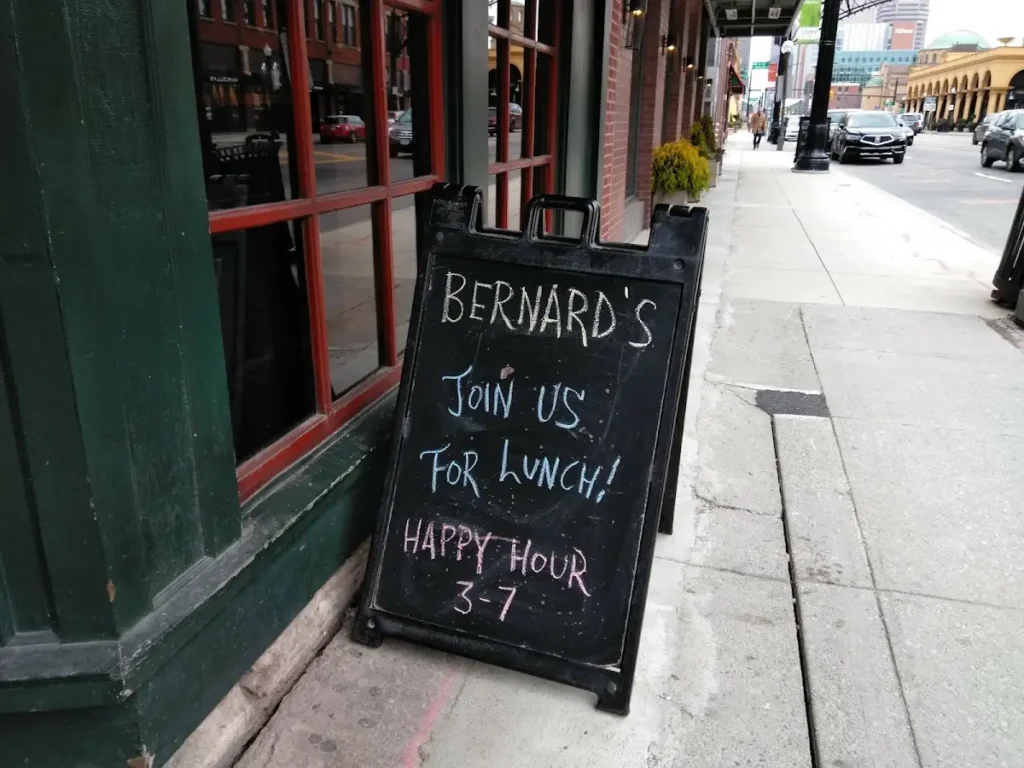 BERNARD'S
JOIN US
FOR LUNCH!
HAPPY HOUR
3-7
Hilton